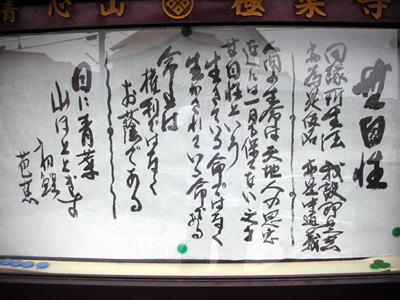 清心山 極楽寺
無自性
因縁所生法 我説即是空
亦為是仮名 亦是中道義
人間の生命は天地人の恩恵
なしには一日も保てない之を
無自性という
生きている命ではなく
生かされている命である
命とは
権利ではなく
お蔭である
目に青葉
山ほととぎす
初鰹
芭蕉